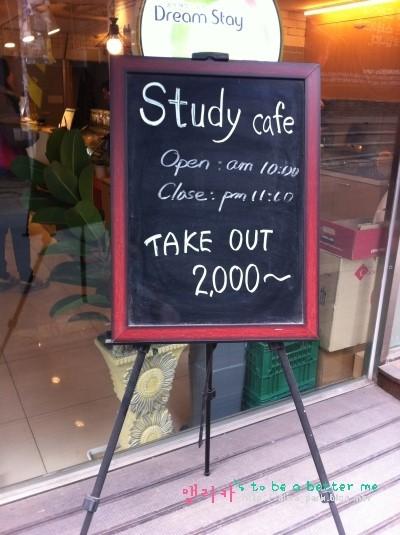 Dream Stay
Study cafe
Open : am 10:00
Close : pm 11:00
TAKE OUT
2,000~
앨리카's to be a better me